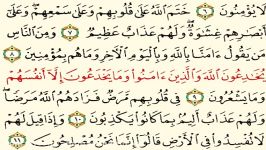 لَا يُؤْمِنُونَ ٦ خَتَمَ ٱللَّهُ عَلَىٰ قُلُوبِهِمْ وَعَلَىٰ سَمْعِهِمْ وَعَلَىٰ
أَبْصَٰرِهِمْ غِشَٰوَةٌ وَلَهُمْ عَذَابٌ عَظِيمٌ ٧ وَمِنَ ٱلنَّاسِ
مَن يَقُولُ ءَامَنَّا بِٱللَّهِ وَبِٱلْيَوْمِ ٱلْءَاخِرِ وَمَا هُم بِمُؤْمِنِينَ ٨
يُخَٰدِعُونَ ٱللَّهَ وَٱلَّذِينَ ءَامَنُوا۟ وَمَا يَخْدَعُونَ إِلَّآ أَنفُسَهُمْ
وَمَا يَشْعُرُونَ ٩ فِى قُلُوبِهِم مَّرَضٌ فَزَادَهُمُ ٱللَّهُ مَرَضًا
وَلَهُمْ عَذَابٌ أَلِيمٌۢ بِمَا كَانُوا۟ يَكْذِبُونَ ١٠ وَإِذَا قِيلَ لَهُمْ
لَا تُفْسِدُوا۟ فِى ٱلْأَرْضِ قَالُوٓا۟ إِنَّمَا نَحْنُ مُصْلِحُونَ ١١